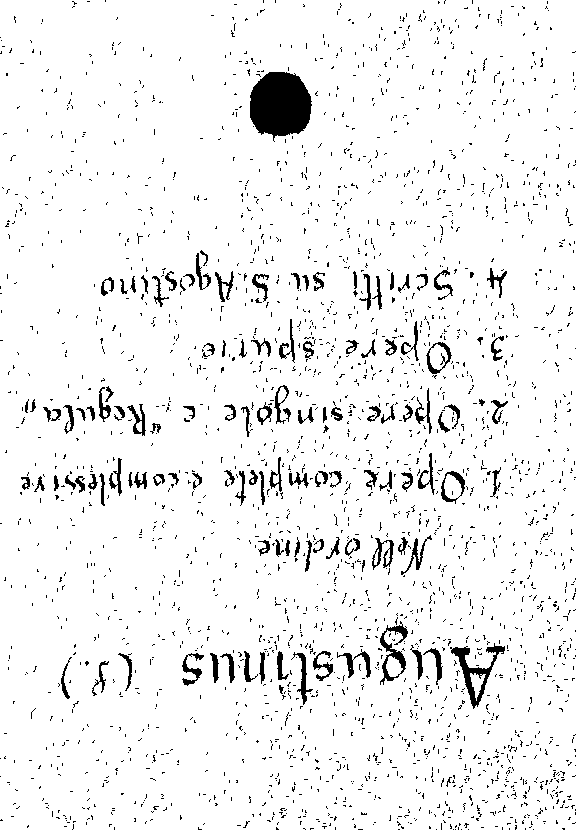 Augustinus (S.)
Nell'ordine
1. Opere complete e complessive
2. Opere singole e "Regula„
3. Opere spurie
4. Scritti su S. Agostino